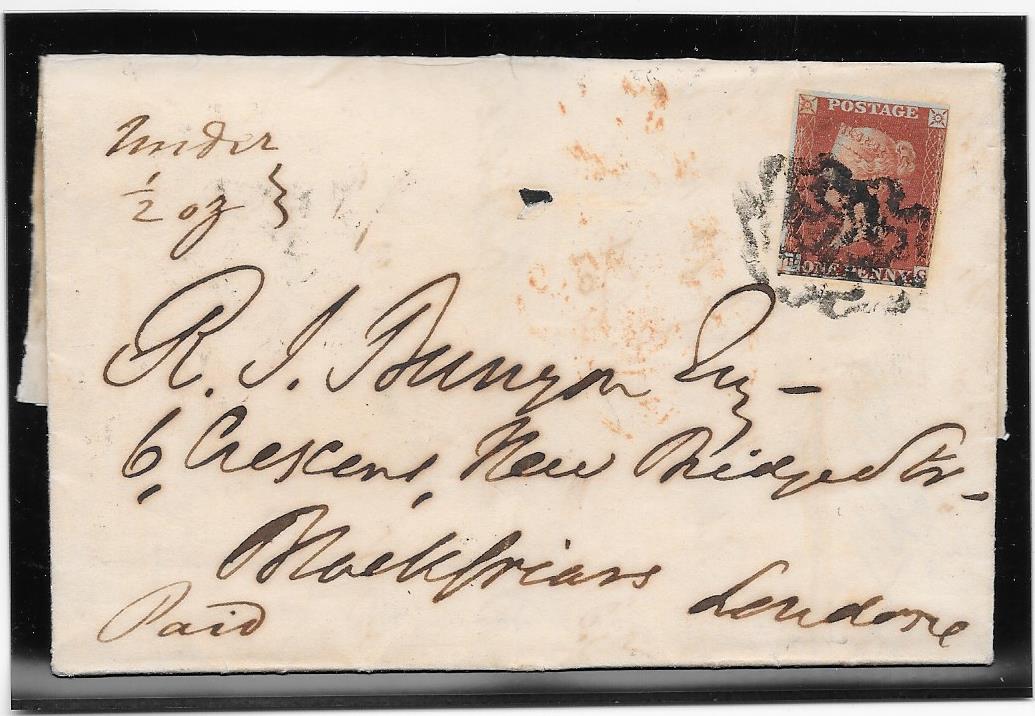 Under
1/2 oz
POSTAGE
ONE PENNY S
R. J. Bunyon Esq -
6, Crescent, New Bridge Str.
Blackfriars
London
Paid